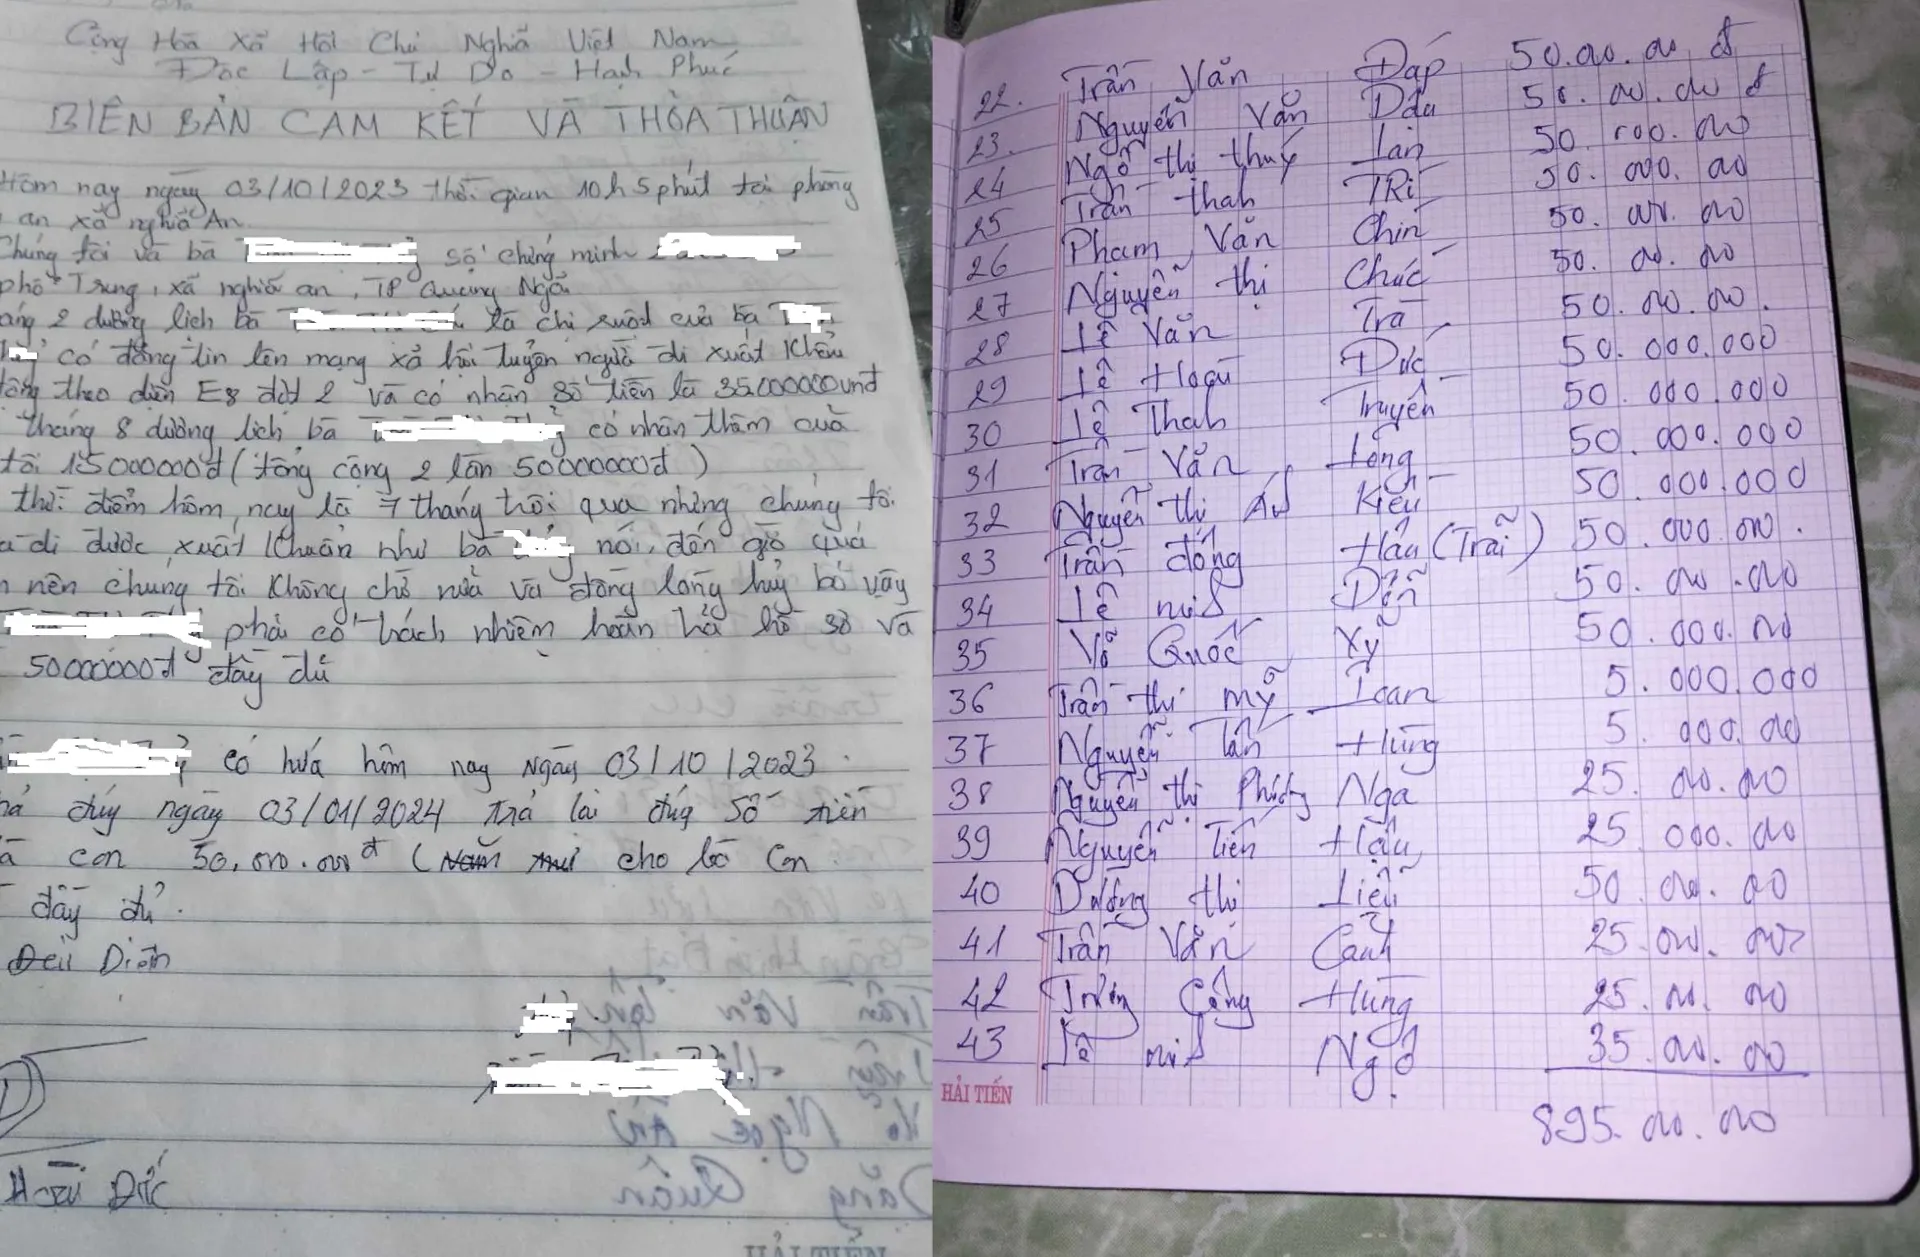 Cộng Hòa Xã Hội Chủ Nghĩa Việt Nam
Độc Lập - Tự Do - Hạnh Phúc
BIÊN BẢN CAM KẾT VÀ THỎA THUẬN
Hôm nay ngày 03/10/2023 thời gian 10h 5 phút tại phòng
an xã nghĩa An
Chúng tôi và bà số chứng minh
phổ Trung, xã nghĩa an, TP Quảng Ngãi
áng 2 dương lịch bà là chị ruột của bà
có đăng tin lên mạng xã hội tuyển người đi xuất khẩu
động theo diện E8 đợt 2 và có nhận số tiền là 35000000vnđ
tháng 8 dương lịch bà có nhận thêm của
tôi 15000000đ (tổng cộng 2 lần 50000000đ)
thời điểm hôm nay là 7 tháng trôi qua nhưng chúng tôi
đi được xuất như bà nói, đến giờ quá
nên chúng tôi không chờ nữa và đồng lòng hủy bỏ vậy
phải có trách nhiệm hoàn trả hồ sơ và
50000000đ đầy đủ
có hứa hôm nay ngày 03/10/2023
đúng ngày 03/01/2024 trả lại đúng số tiền
con 50.000.000đ cho bà con
đầy đủ.
Đại Diện
Hoài Đức
Trần Văn
Võ Ngọc Ân
Đặng Quân
HẢI TIẾN
22. Trần Văn Đáp 50.00.00 đ
23. Nguyễn Văn Dấu 50.00.00 đ
24 Ngô thị thuý Lan 50.000.000
25 Trần thanh TRí 50.000.00
26 Phạm Văn Chín 50.00.00
27 Nguyễn thị Chúc 50.00.00
28 Lê Văn Trà 50.00.00.
29 Lê Hoài Đức 50.000.000
30 Lê Thanh Truyền 50.000.000
31 Trần Văn Long 50.000.000
32 Nguyễn thị Kiều 50.000.000
33 Trần đông Hậu (Trãi) 50.000.00.
34 Lê minh Dẫn 50.00.00
35 Võ Quốc Xỹ 50.000.00
36 Trần thị mỹ Loan 5.000.000
37 Nguyễn Tấn Hùng 5.000.00
38 Nguyễn thị Phương Nga 25.00.00
39 Nguyễn Tiến Hậu 25.000.00
40 Dương thị Liễu 50.00.00
41 Trần Văn Cảnh 25.00.00
42 Trương Công Hùng 25.00.00
43 Lê minh Ngô 35.00.00
895.00.00
HẢI TIẾN